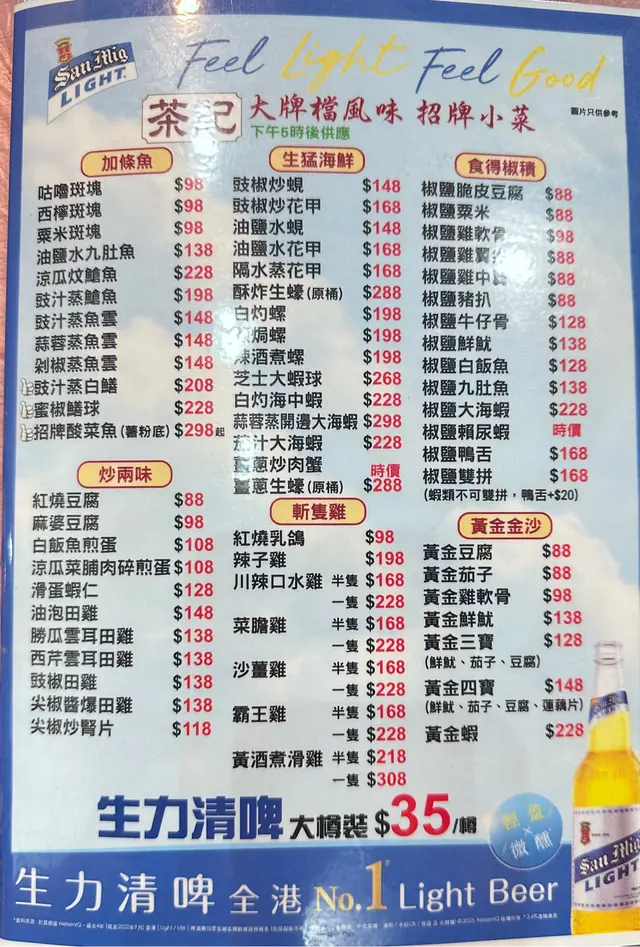 San Mig
LIGHT
Feel Light Feel Good
茶記 大牌檔風味 招牌小菜
下午5時後供應
圖片只供參考
加條魚
咕嚕斑塊 $98
西檸斑塊 $98
粟米斑塊 $98
油鹽水九肚魚 $138
涼瓜炆鱠魚 $228
豉汁蒸鱠魚 $198
豉汁蒸魚雲 $148
蒜蓉蒸魚雲 $148
剁椒蒸魚雲 $148
豉汁蒸白鱔 $208
蜜椒鱔球 $228
招牌酸菜魚(薯粉底) $298起
炒兩味
紅燒豆腐 $88
麻婆豆腐 $98
白飯魚煎蛋 $108
涼瓜菜脯肉碎煎蛋 $108
滑蛋蝦仁 $128
油泡田雞 $148
勝瓜雲耳田雞 $138
西芹雲耳田雞 $138
豉椒田雞 $138
尖椒醬爆田雞 $138
尖椒炒腎片 $118
生猛海鮮
豉椒炒蜆 $148
豉椒炒花甲 $168
油鹽水蜆 $148
油鹽水花甲 $168
隔水蒸花甲 $168
酥炸生蠔(原桶) $288
白灼螺 $198
焗螺 $198
辣酒煮螺 $198
芝士大蝦球 $268
白灼海中蝦 $228
蒜蓉蒸開邊大海蝦 $298
茄汁大海蝦 $228
薑蔥炒肉蟹 時價
薑蔥生蠔(原桶) $288
斬隻雞
紅燒乳鴿 $98
辣子雞 $198
川辣口水雞 半隻 $168
一隻 $228
菜膽雞 半隻 $168
一隻 $228
沙薑雞 半隻 $168
一隻 $228
霸王雞 半隻 $168
一隻 $228
黃酒煮滑雞 半隻 $218
一隻 $308
食得椒積
椒鹽脆皮豆腐 $88
椒鹽粟米 $88
椒鹽雞軟骨 $98
椒鹽雞翼 $88
椒鹽雞中 $88
椒鹽豬扒 $88
椒鹽牛仔骨 $128
椒鹽鮮魷 $138
椒鹽白飯魚 $128
椒鹽九肚魚 $138
椒鹽大海蝦 $228
椒鹽賴尿蝦 時價
椒鹽鴨舌 $168
椒鹽雙拼 $168
(蝦類不可雙拼,鴨舌+$20)
黃金金沙
黃金豆腐 $88
黃金茄子 $88
黃金雞軟骨 $98
黃金鮮魷 $138
黃金三寶 $128
(鮮魷、茄子、豆腐)
黃金四寶 $148
(鮮魷、茄子、豆腐、蓮藕片)
黃金蝦 $228
生力清啤 大樽裝 $35/樽
輕盈
×
微醺
San Mig
LIGHT
生力清啤 全港 No.1 Light Beer